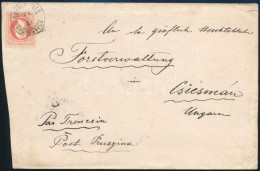 An die gräflich
Forstverwaltung
in
Csicsmán
Ungarn
Per Trencsin
Post Pruszina